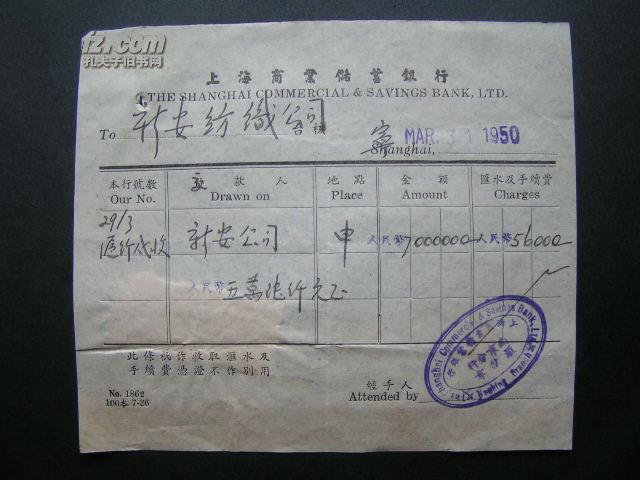 z.com
孔夫子旧书网
上海商業儲蓄銀行
THE SHANGHAI COMMERCIAL & SAVINGS BANK, LTD.
To 新安紡織公司 台核
寗 Shanghai, MAR. 31 1950
本行號數 款人 地點 金額 匯水及手續費
Our No. Drawn on Place Amount Charges
29/3 新安公司 申 人民幣 7000000 人民幣 56000
人民幣 五萬陸仟元正
此條祗作收取滙水及
手續費憑證不作別用
經手人
Attended by
No. 1862
100本 7-36
Shanghai Commercial & Savings Bank, Ltd.
Nanking Branch